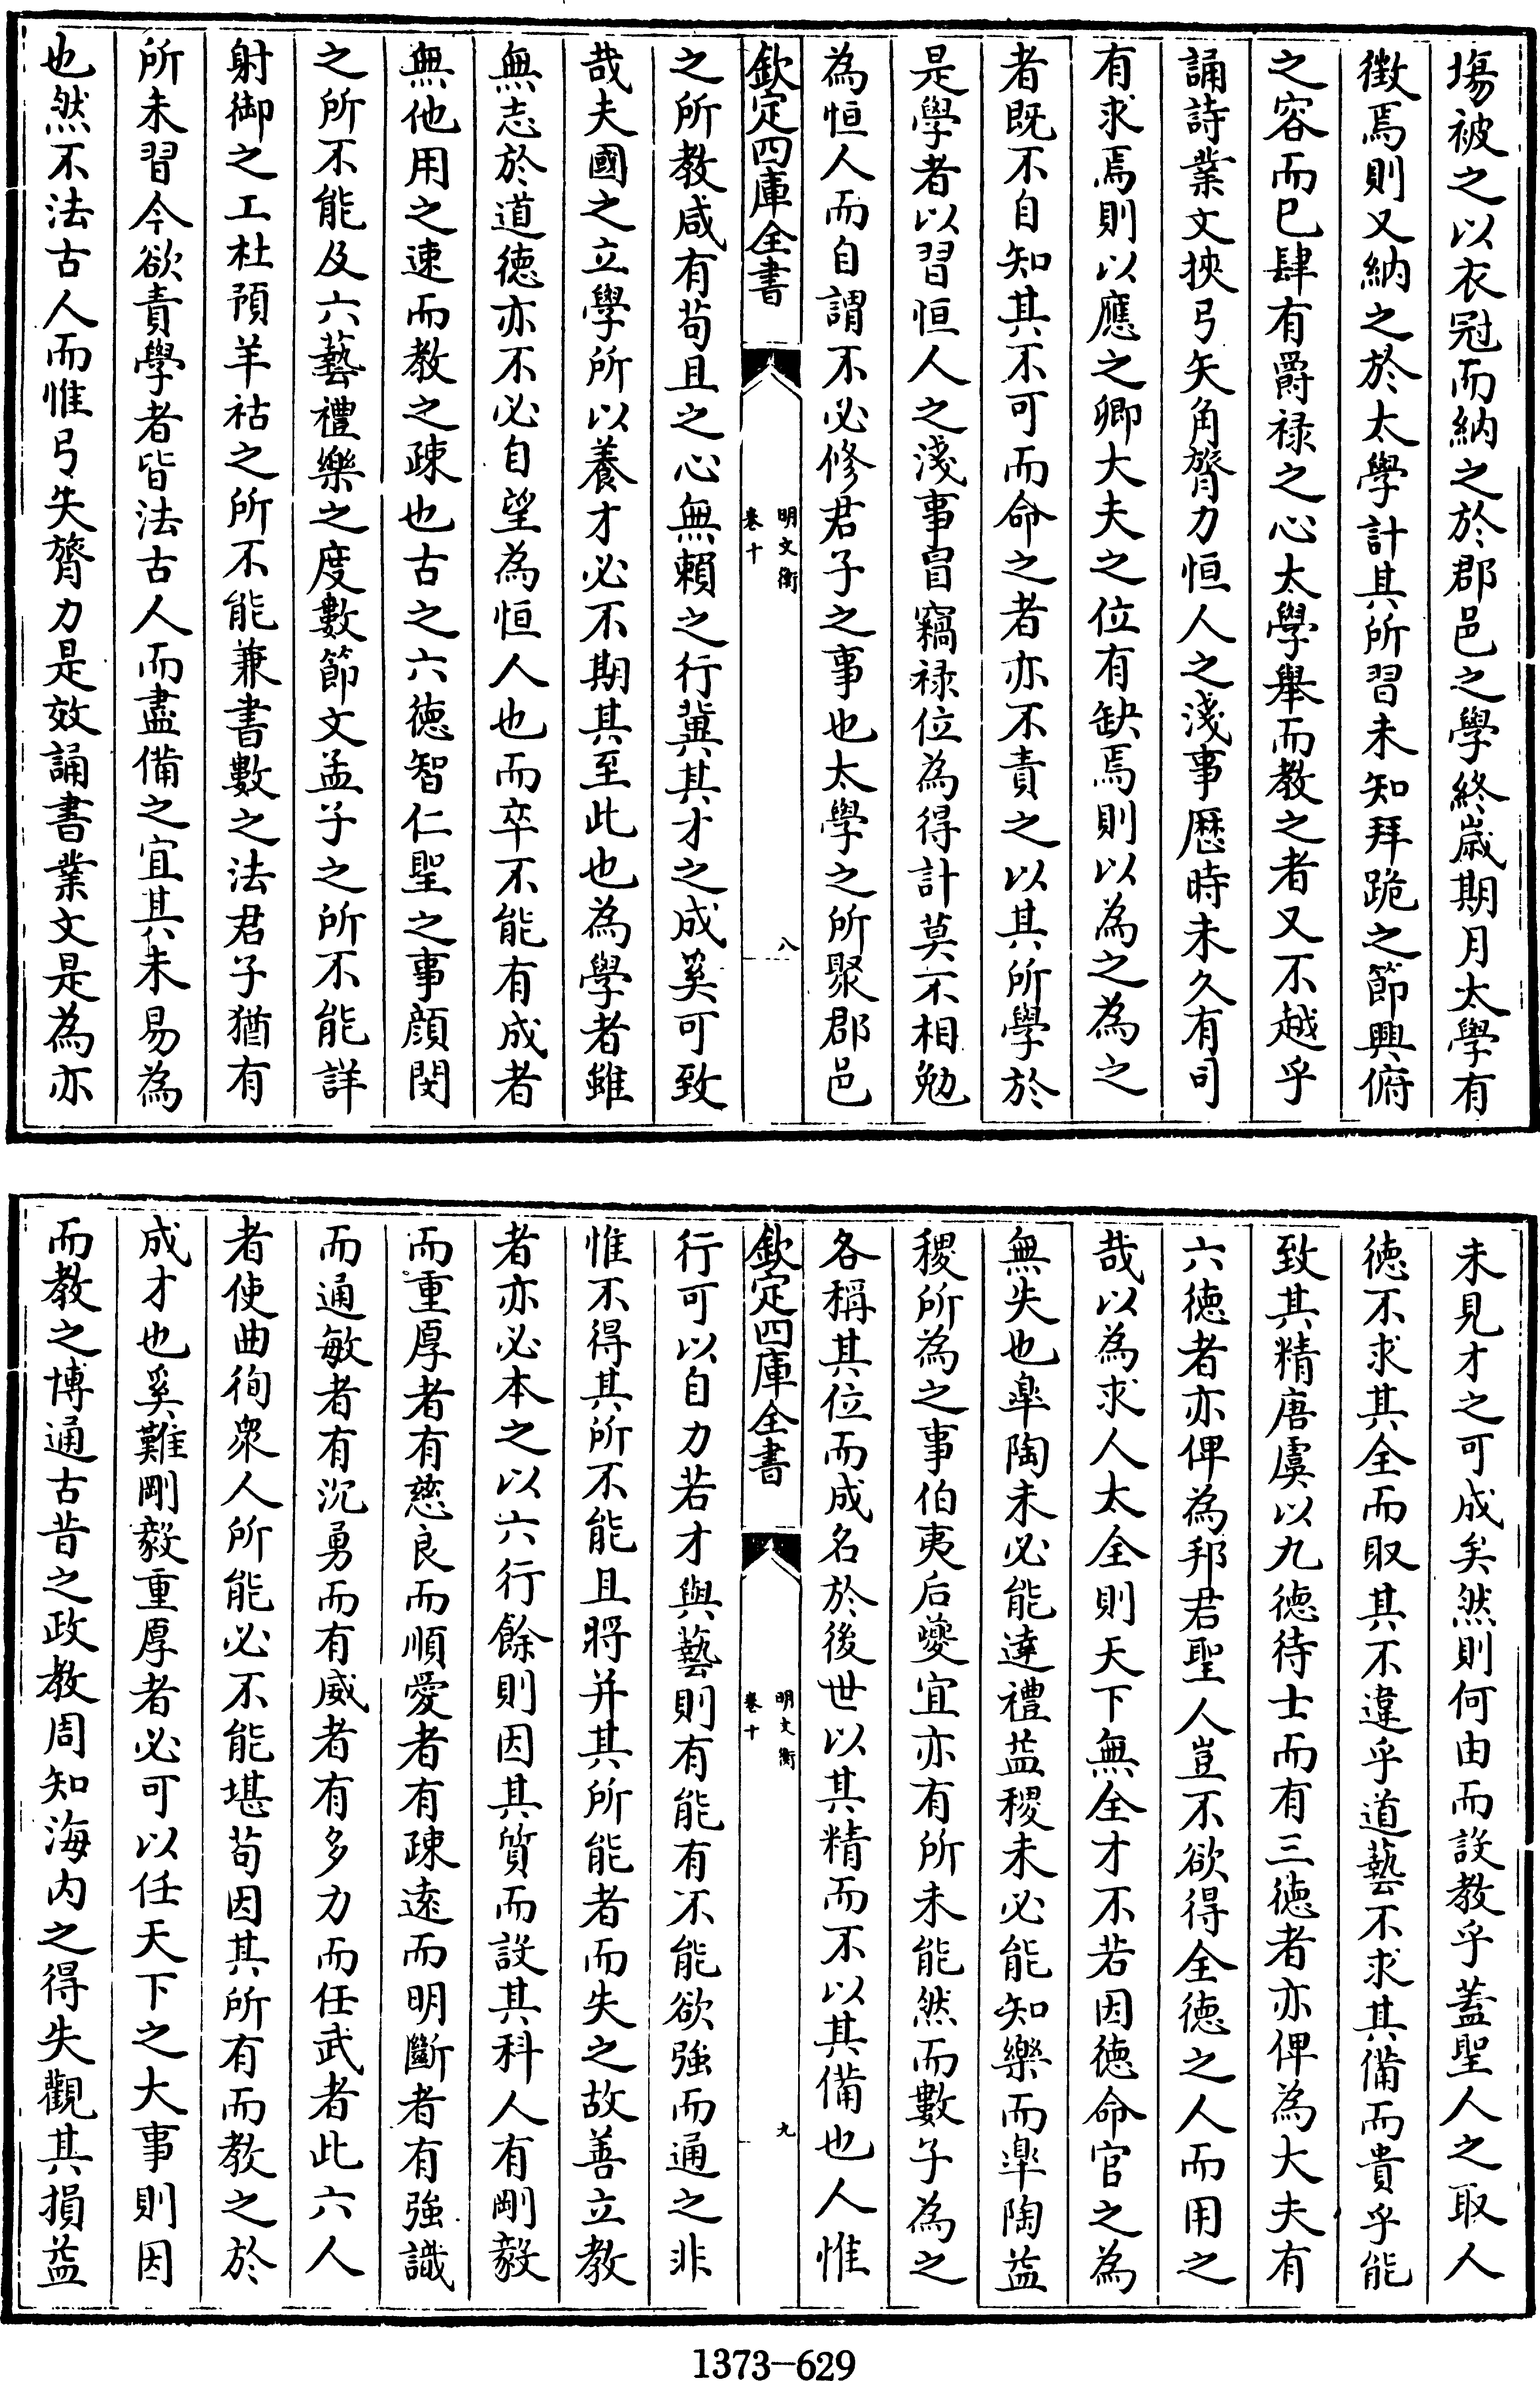 塲被之以衣冠而納之於郡邑之學終歲期月太學有
徵焉則又納之於太學計其所習未知拜跪之節興俯
之容而已肆有爵祿之心太學舉而教之者又不越乎
誦詩業文挾弓矢角膂力恒人之淺事歴時未久有司
有求焉則以應之卿大夫之位有缺焉則以為之為之
者既不自知其不可而命之者亦不責之以其所學於
是學者以習恒人之淺事冒竊祿位為得計莫不相勉
為恒人而自謂不必修君子之事也太學之所聚郡邑
欽定四庫全書
明文衡
卷十
八
之所教咸有苟且之心無賴之行冀其才之成奚可致
哉夫國之立學所以養才必不期其至此也為學者雖
無志於道徳亦不必自望為恒人也而卒不能有成者
無他用之速而教之疎也古之六徳智仁聖之事顔閔
之所不能及六藝禮樂之度數節文孟子之所不能詳
射御之工杜預羊祜之所不能兼書數之法君子猶有
所未習今欲責學者皆法古人而盡備之宜其未易為
也然不法古人而惟弓矢膂力是效誦書業文是為亦
未見才之可成矣然則何由而設教乎蓋聖人之取人
徳不求其全而取其不違乎道藝不求其備而貴乎能
致其精唐虞以九徳待士而有三徳者亦俾為大夫有
六徳者亦俾為邦君聖人豈不欲得全徳之人而用之
哉以為求人太全則天下無全才不若因徳命官之為
無失也臯陶未必能達禮益稷未必能知樂而臯陶益
稷所為之事伯夷后夔宜亦有所未能然而數子為之
各稱其位而成名於後世以其精而不以其備也人惟
欽定四庫全書
明文衡
卷十
九
行可以自力若才與藝則有能有不能欲強而通之非
惟不得其所不能且將并其所能者而失之故善立教
者亦必本之以六行餘則因其質而設其科人有剛毅
而重厚者有慈良而順愛者有疎逺而明斷者有強識
而通敏者有沉勇而有威者有多力而任武者此六人
者使曲徇衆人所能必不能堪苟因其所有而教之於
成才也奚難剛毅重厚者必可以任天下之大事則因
而教之博通古昔之政教周知海内之得失觀其損益
1373—629